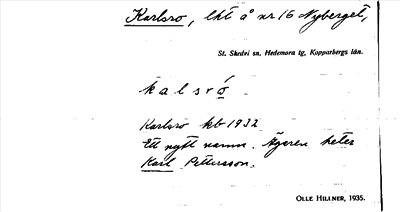 Karlsro, lht å nr 16 Nyberget,
St. Skedvi sn, Hedemora tg, Kopparbergs län.
kalsró
Karlsro kb 1932
Ett nytt namn. Ägaren heter
Karl Pettersson.
OLLE HILLNER, 1935.